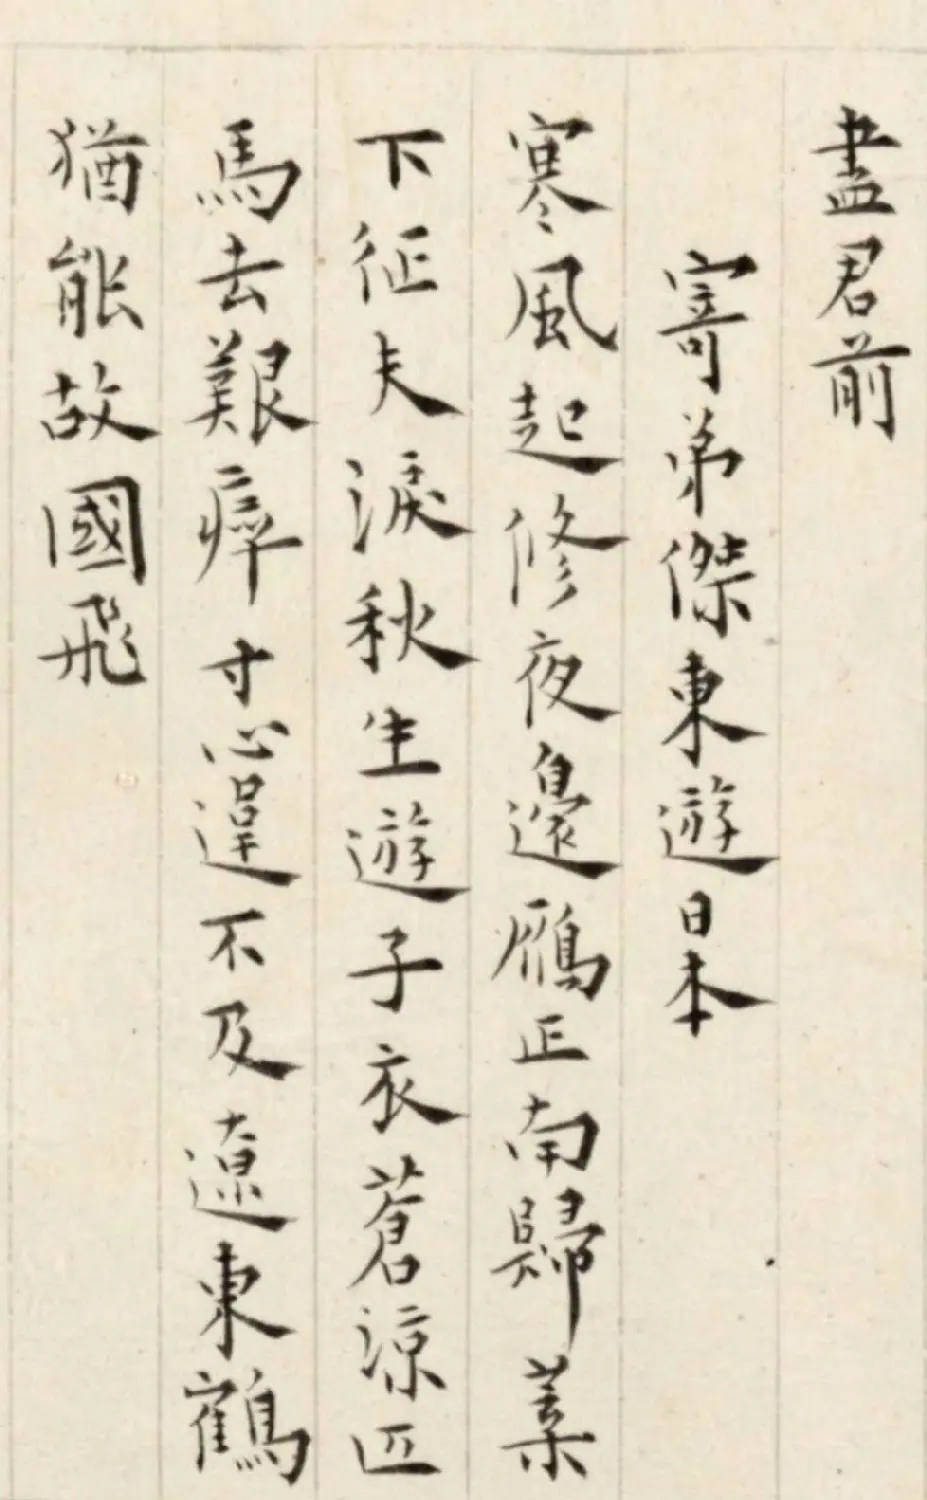 盡君前
寄弟傑東遊日本
寒風起修夜邊鴈正南歸葉
下征夫淚秋生遊子衣蒼涼匹
馬去艱瘁寸心違不及遼東鶴
猶能故國飛